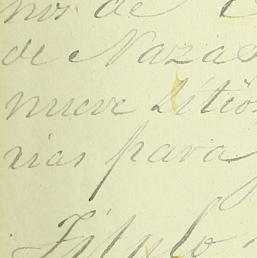 nos de
de Nazas
nueve Sitio
rias para
Titulo